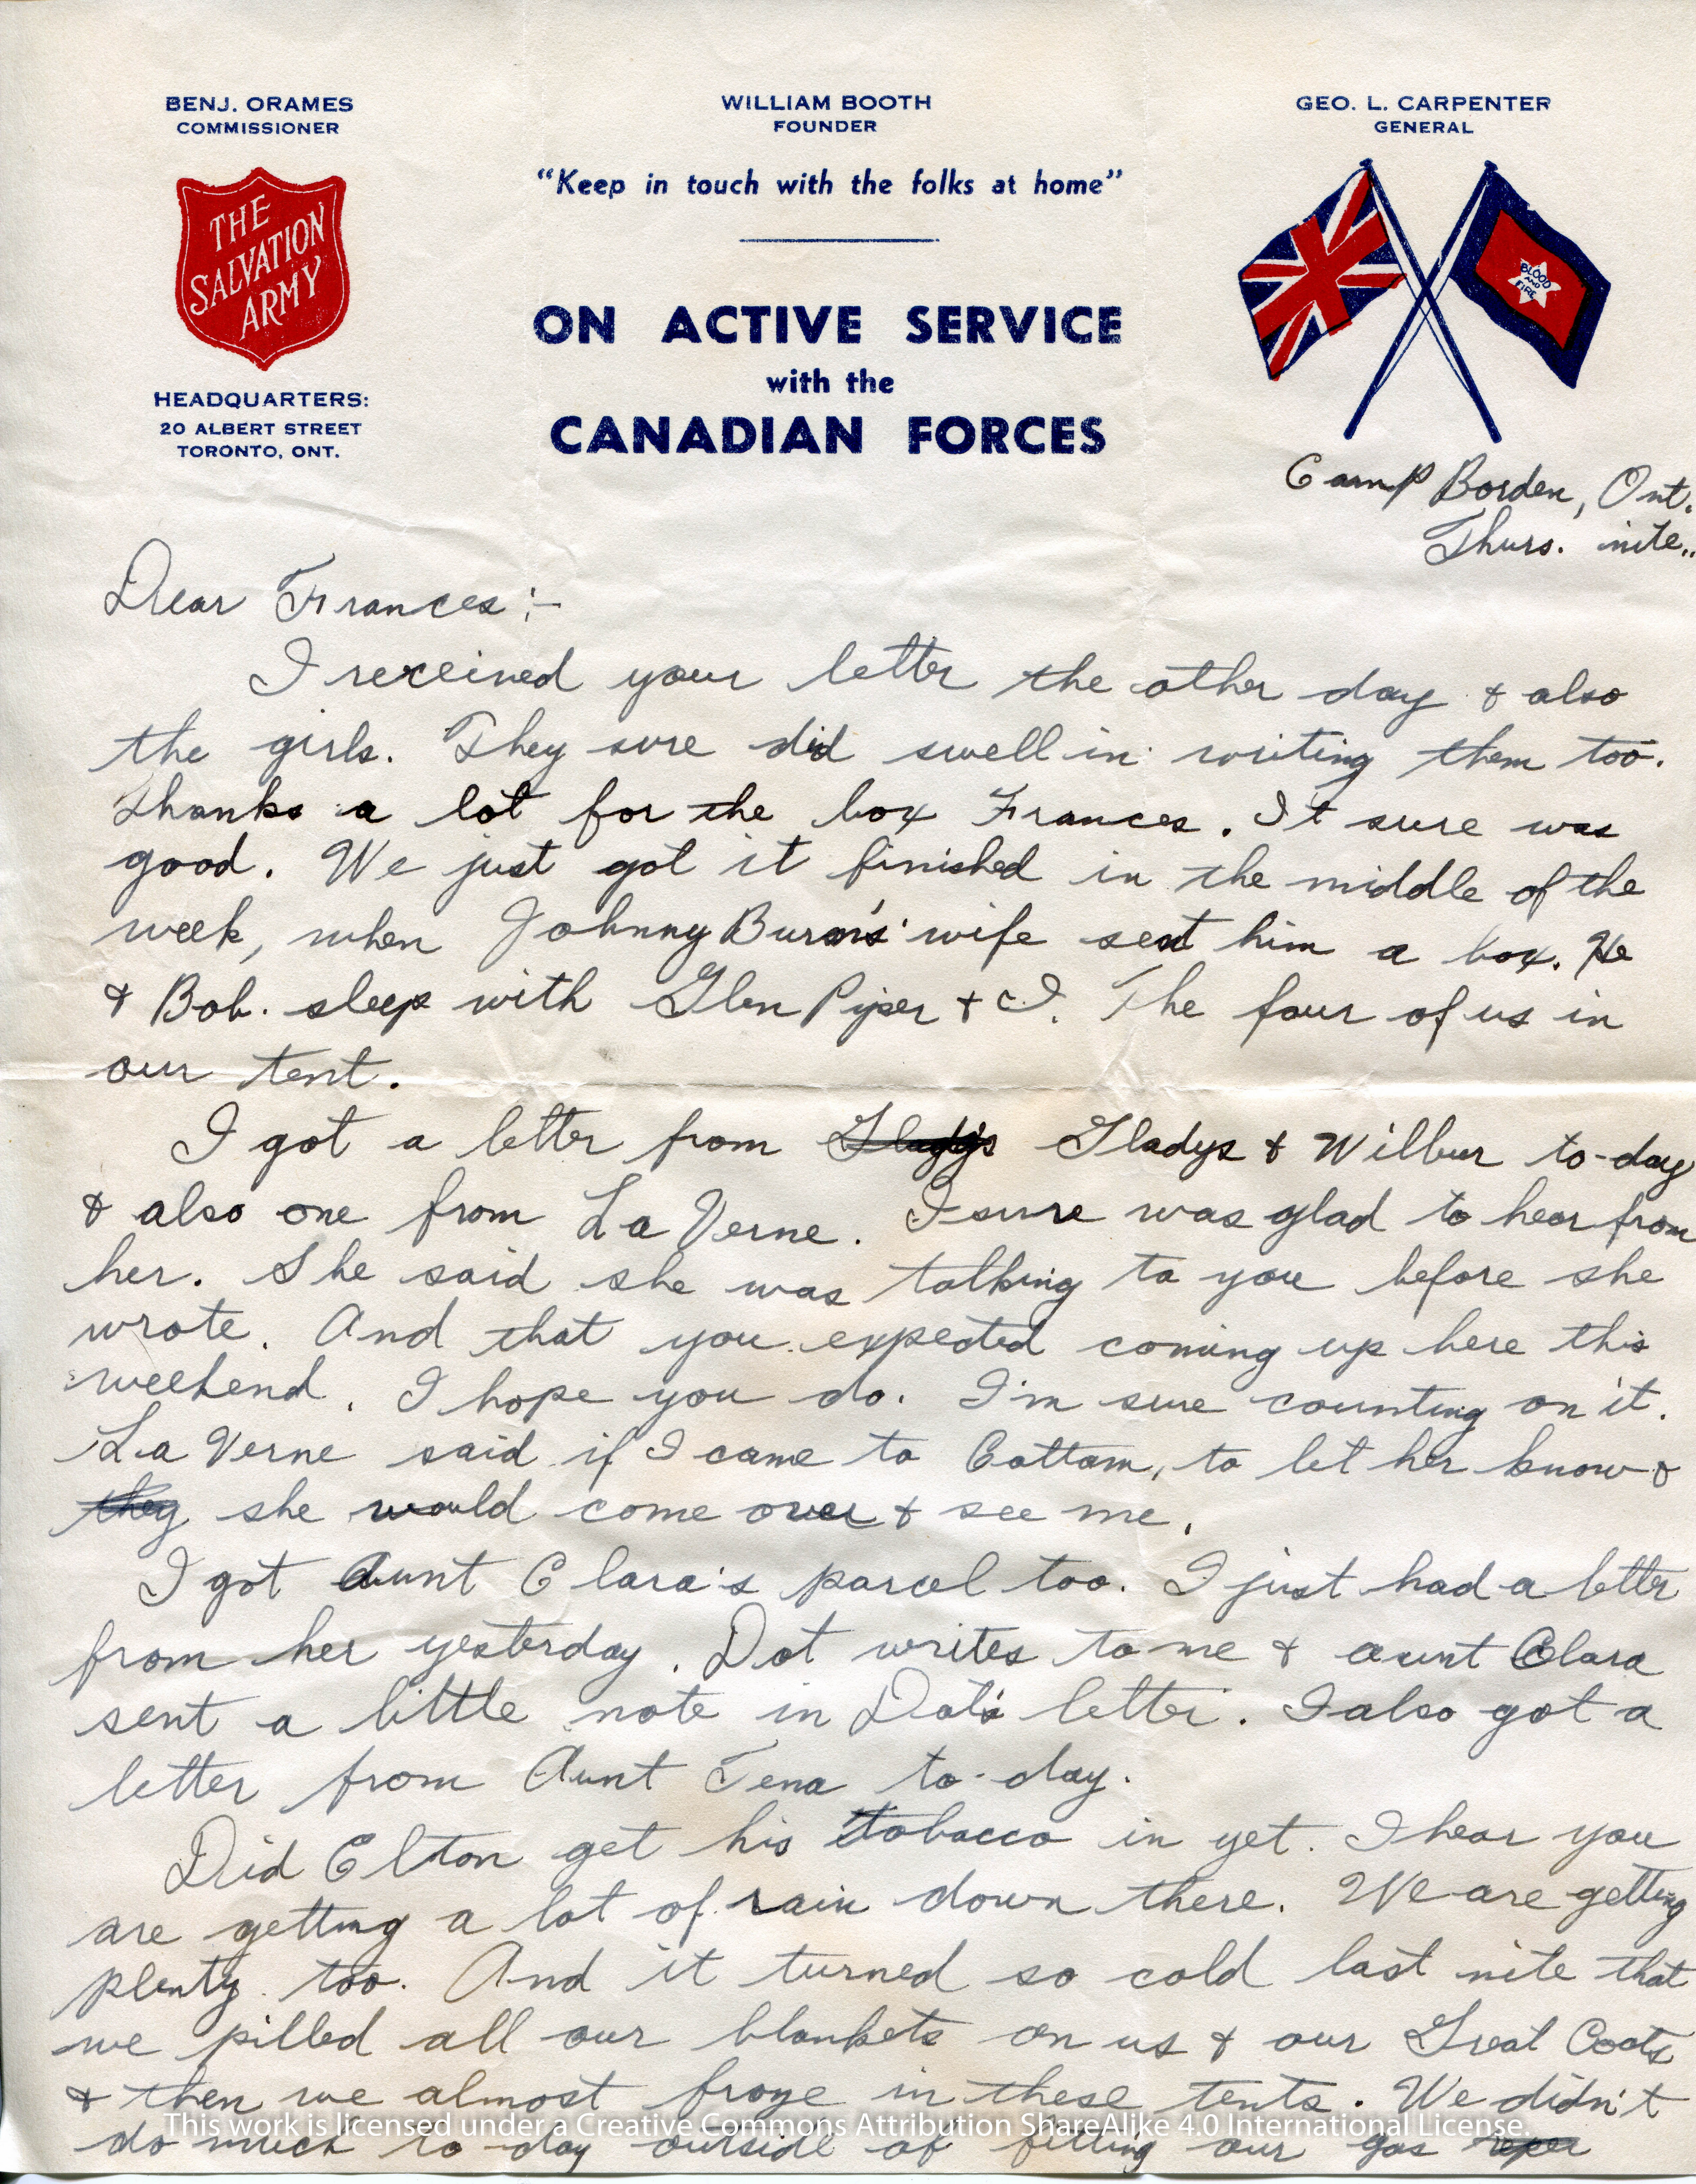 BENJ. ORAMES
COMMISSIONER
THE
SALVATION
ARMY
HEADQUARTERS:
20 ALBERT STREET
TORONTO, ONT.
WILLIAM BOOTH
FOUNDER
"Keep in touch with the folks at home"
ON ACTIVE SERVICE
with the
CANADIAN FORCES
GEO. L. CARPENTER
GENERAL
BLOOD
AND
FIRE
Camp Borden, Ont.
Thurs. nite..
Dear Frances:-
I received your letter the other day & also
the girls. They sure did swell in writing them too.
Thanks a lot for the box Frances. It sure was
good. We just got it finished in the middle of the
week, when Johnny Burn's wife sent him a box. He
& Bob. sleep with Glen Piper & I. The four of us in
our tent.
I got a letter from Gladys Gladys & Wilbur to-day
& also one from La Verne. I sure was glad to hear from
her. She said she was talking to you before she
wrote. And that you expected coming up here this
weekend. I hope you do. I'm sure counting on it.
La Verne said if I came to Cottam, to let her know &
they she would come over & see me.
I got Aunt Clara's parcel too. I just had a letter
from her yesterday. Dot writes to me & aunt Clara
sent a little note in Dot's letter. I also got a
letter from Aunt Tena to-day.
Did Elton get his tobacco in yet. I hear you
are getting a lot of rain down there. We are getting
plenty too. And it turned so cold last nite that
we pilled all our blankets on us & our Great Coats
& then we almost froze in these tents. We didn't
do much to-day outside of fitting our gas
This work is licensed under a Creative Commons Attribution ShareAlike 4.0 International License.